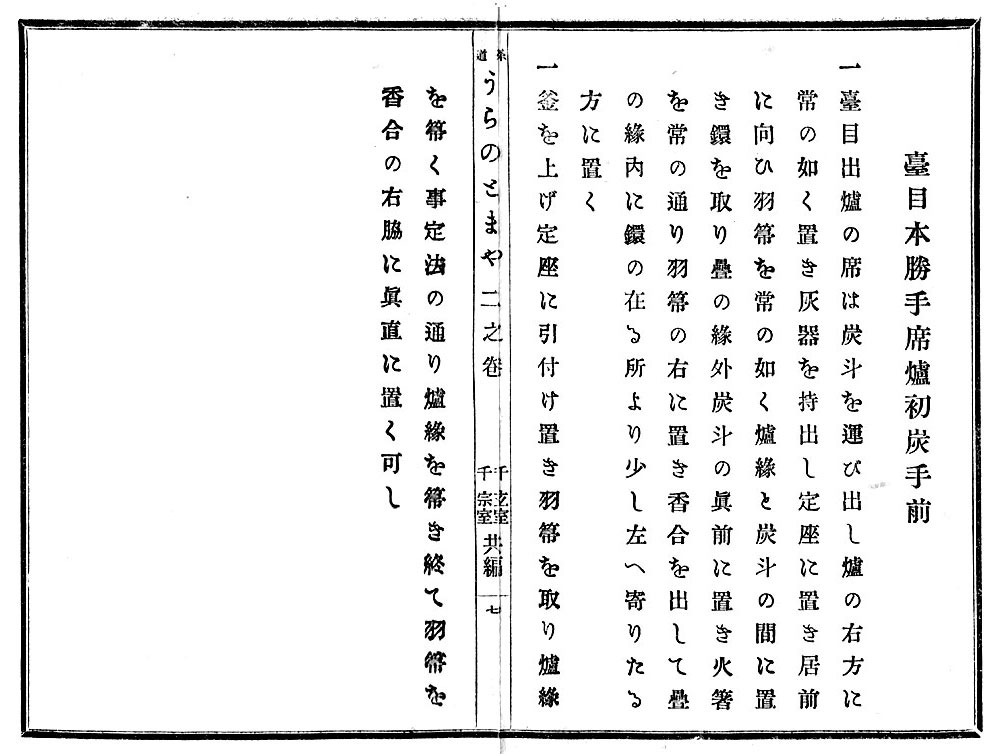 臺目本勝手席爐初炭手前
一臺目出爐の席は炭斗を運び出し爐の右方に
常の如く置き灰器を持出し定座に置き居前
に向ひ羽箒を常の如く爐緣と炭斗の間に置
き鐶を取り疊の緣外炭斗の眞前に置き火箸
を常の通り羽箒の右に置き香合を出して疊
の緣內に鐶の在る所より少し左へ寄りたる
方に置く
一釜を上げ定座に引付け置き羽箒を取り爐緣
茶道
うらのとまや 二之卷
千玄室
千宗室
共編
七
を箒く事定法の通り爐緣を箒き終て羽箒を
香合の右脇に眞直に置く可し